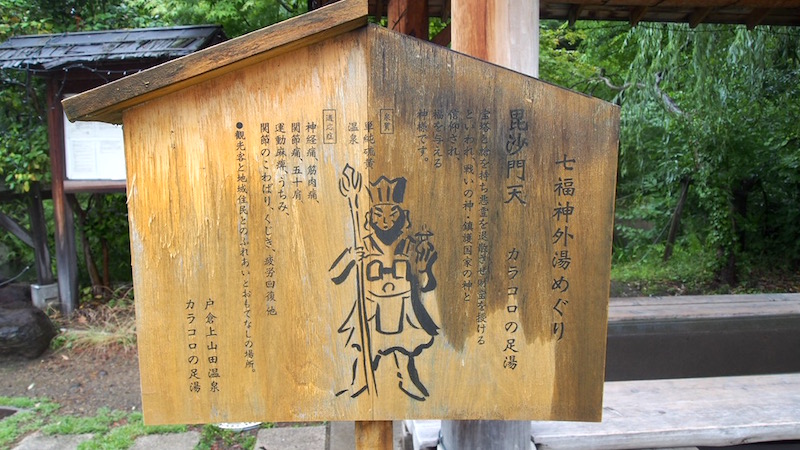 七福神外湯めぐり
毘沙門天　カラコロの足湯
宝塔と鉾を持ち悪霊を退散させ財宝を授ける
といわれ、戦いの神・鎮護国家の神と
信仰され、
福を与える
神様です。
泉質
単純硫黄
温泉
適応症
神経痛、筋肉痛、
関節痛、五十肩、
運動麻痺、うちみ、
関節のこわばり、くじき、疲労回復 他
●観光客と地域住民とのふれあいとおもてなしの場所。
戸倉上山田温泉
カラコロの足湯